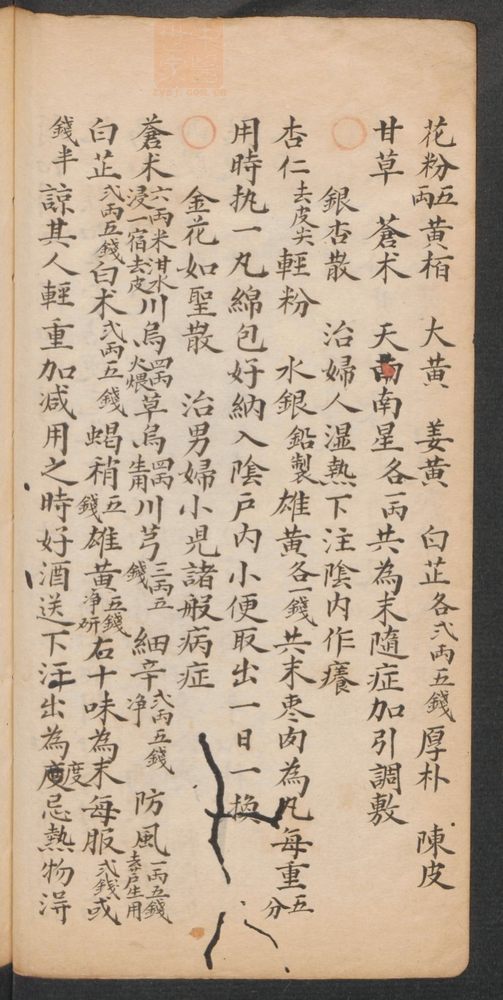 花粉五両黄栢 大黄 姜黄 白芷各弍両五錢厚朴 陳皮
甘草 蒼术 天南星各一両共為末隨症加引調敷
○ 銀杏散 治婦人湿熱下注隂内作癢
杏仁去皮尖軽粉 水銀鉛製雄黄各一錢共末枣肉為丸每重五分
用時执一丸綿包好納入隂户内小便取出一日一換
○ 金花如聖散 治男婦小児諸般病症
蒼术六両米泔水浸一宿去皮川烏四両火煨草烏四両生用川芎三両五錢 細辛弍両五錢净 防風一両五錢去芦生用
白芷弍両五錢白术弍両五錢 蝎稍五錢雄黄五錢净研右十味為末每服弍錢或
錢半 諒其人軽重加减用之時好酒送下汗出為度忌熱物淂